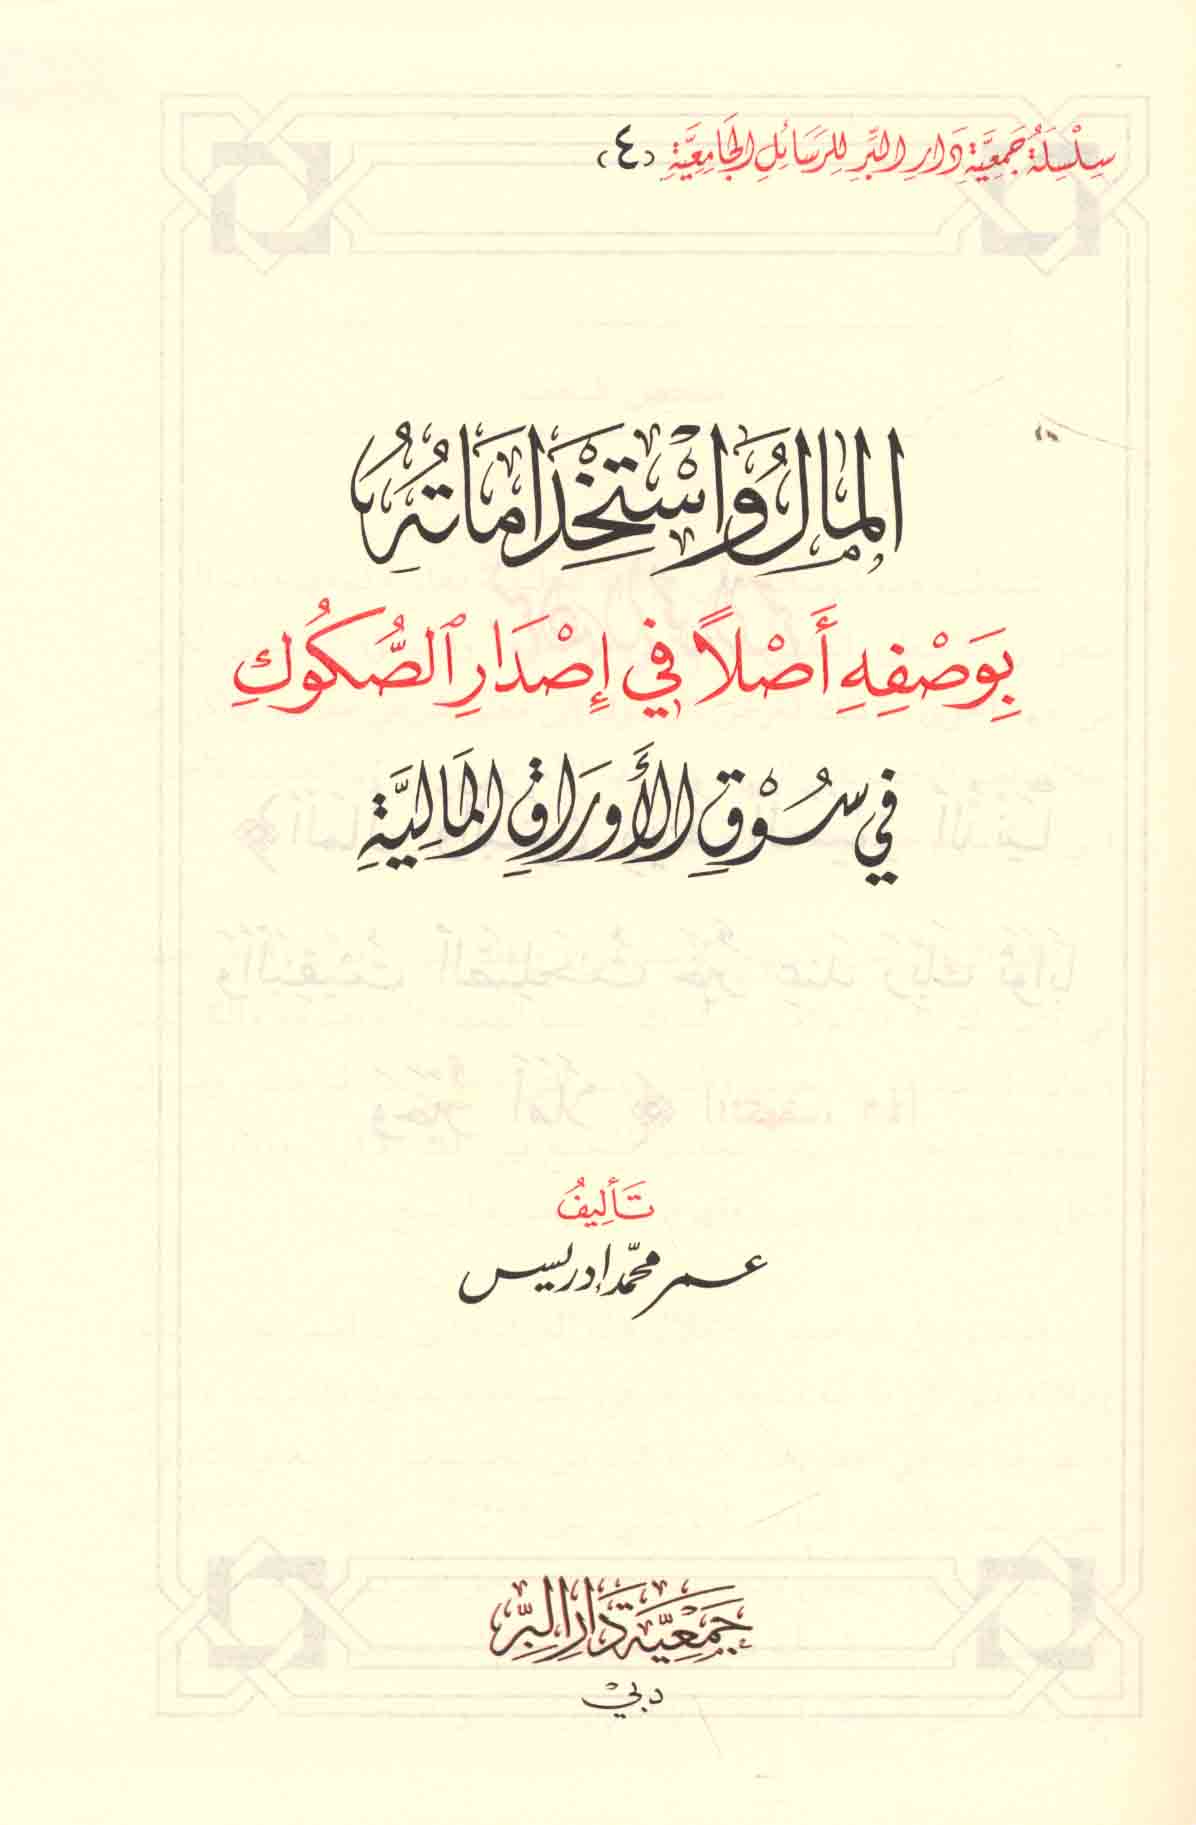 سِلْسِلَةُ جَمْعِيَّةِ دَارِ البِرِّ لِلرَّسَائِلِ الجَامِعِيَّةِ (٤)
المَالُ وَاسْتِخْدَامَاتُهُ
بِوَصْفِهِ أَصْلاً فِي إِصْدَارِ ٱلصُّكُوكِ
فِي سُوْقِ الأَوْرَاقِ المَالِيَّةِ
تَأْلِيفُ
عمر محمّد إدريس
جَمْعِيَّة دَارِ البِرِّ
دبيْ